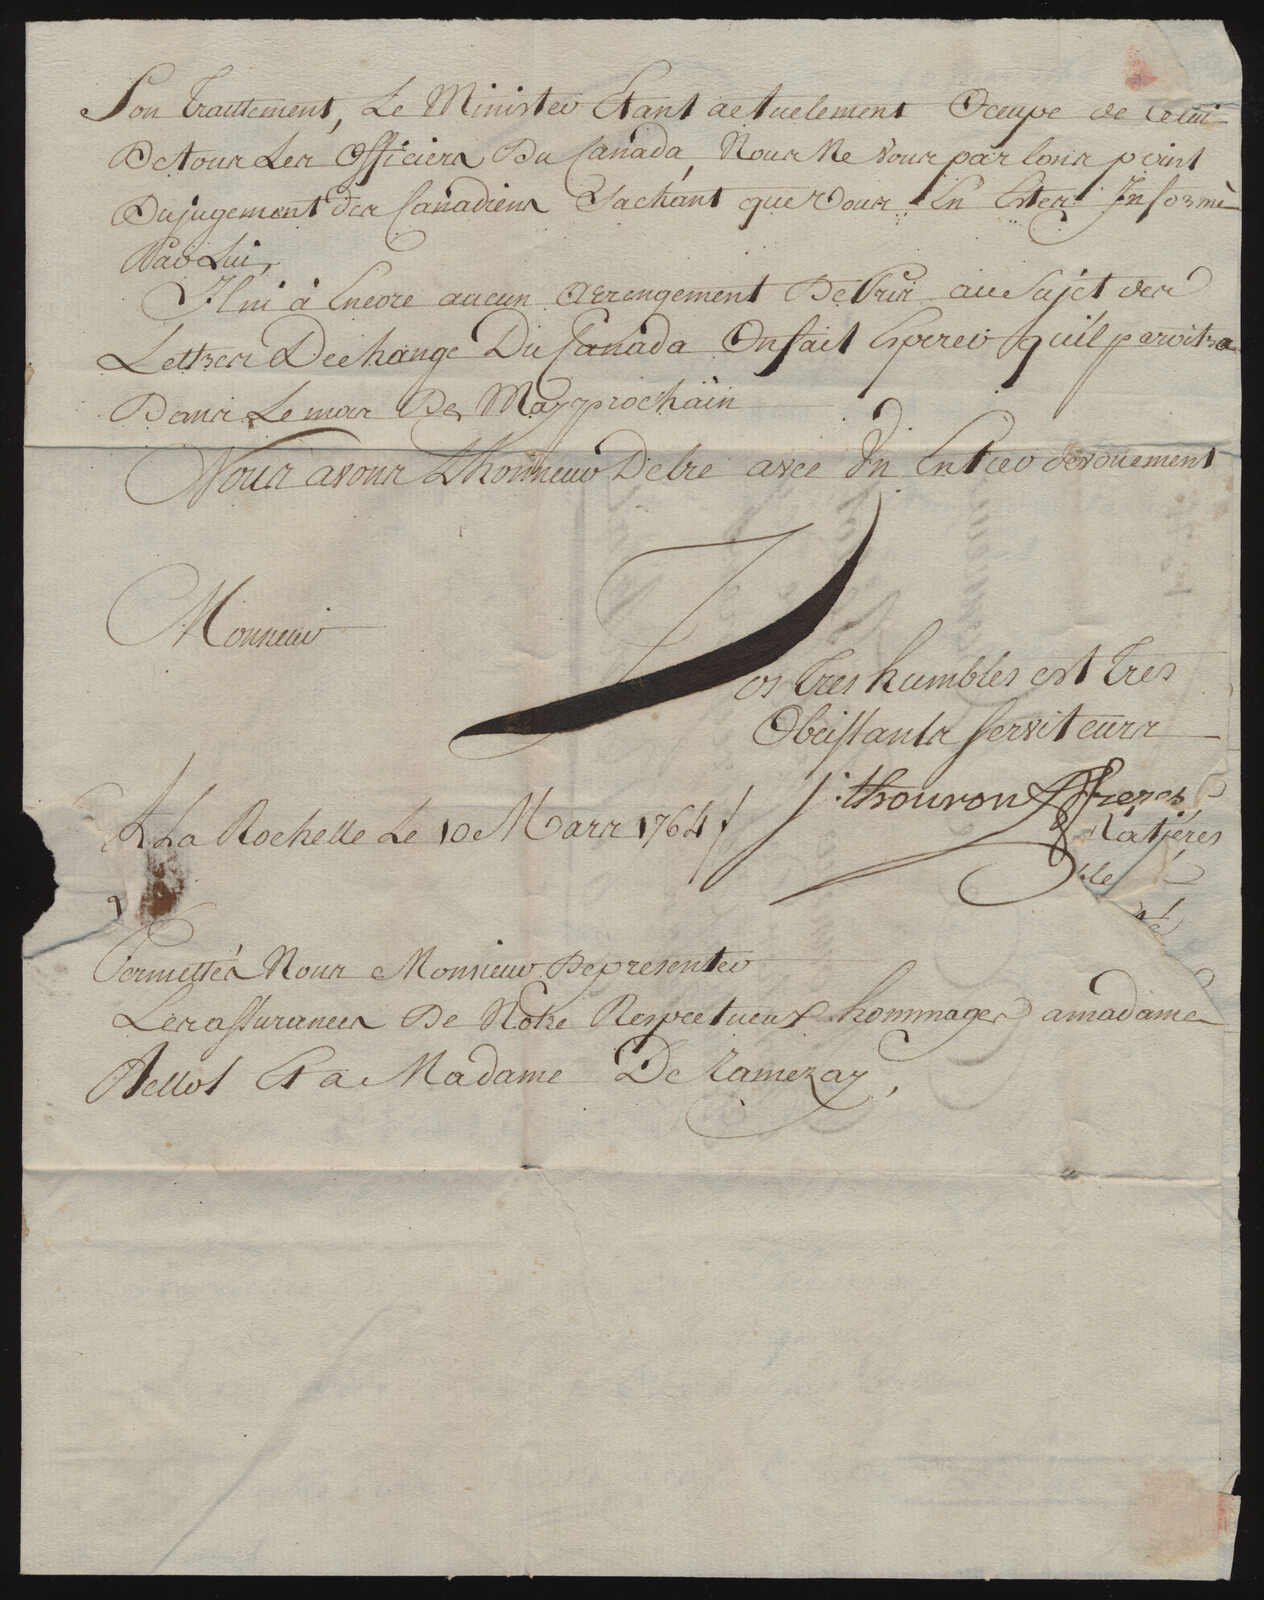 Son Traittement, Le Ministre Etant actuelement Occupé de Celui
De tous Les Officiers Du Canada, Nous Ne vous parlons point
Du jugement des Canadiens Sachant que Vous En Etes Informé
Par Lui,
Il ni à Encore aucun Arengement De Pris au Sujet des
Lettres Dechange Du Canada On fait Esperer qu'il paroitra
Dans Le mois De May prochain
Nous avons Lhonneur Detre avec Un Entier devouement
Monsieur
Vos Tres humbles est Tres
Obeissants serviteurs
thouron & freres
A La Rochelle Le 10 Mars 1764
Permettés Nous Monsieur De presenter
Les assurances De Notre Respectueux hommages a madame
Bellot Et a Madame De Ramezay,